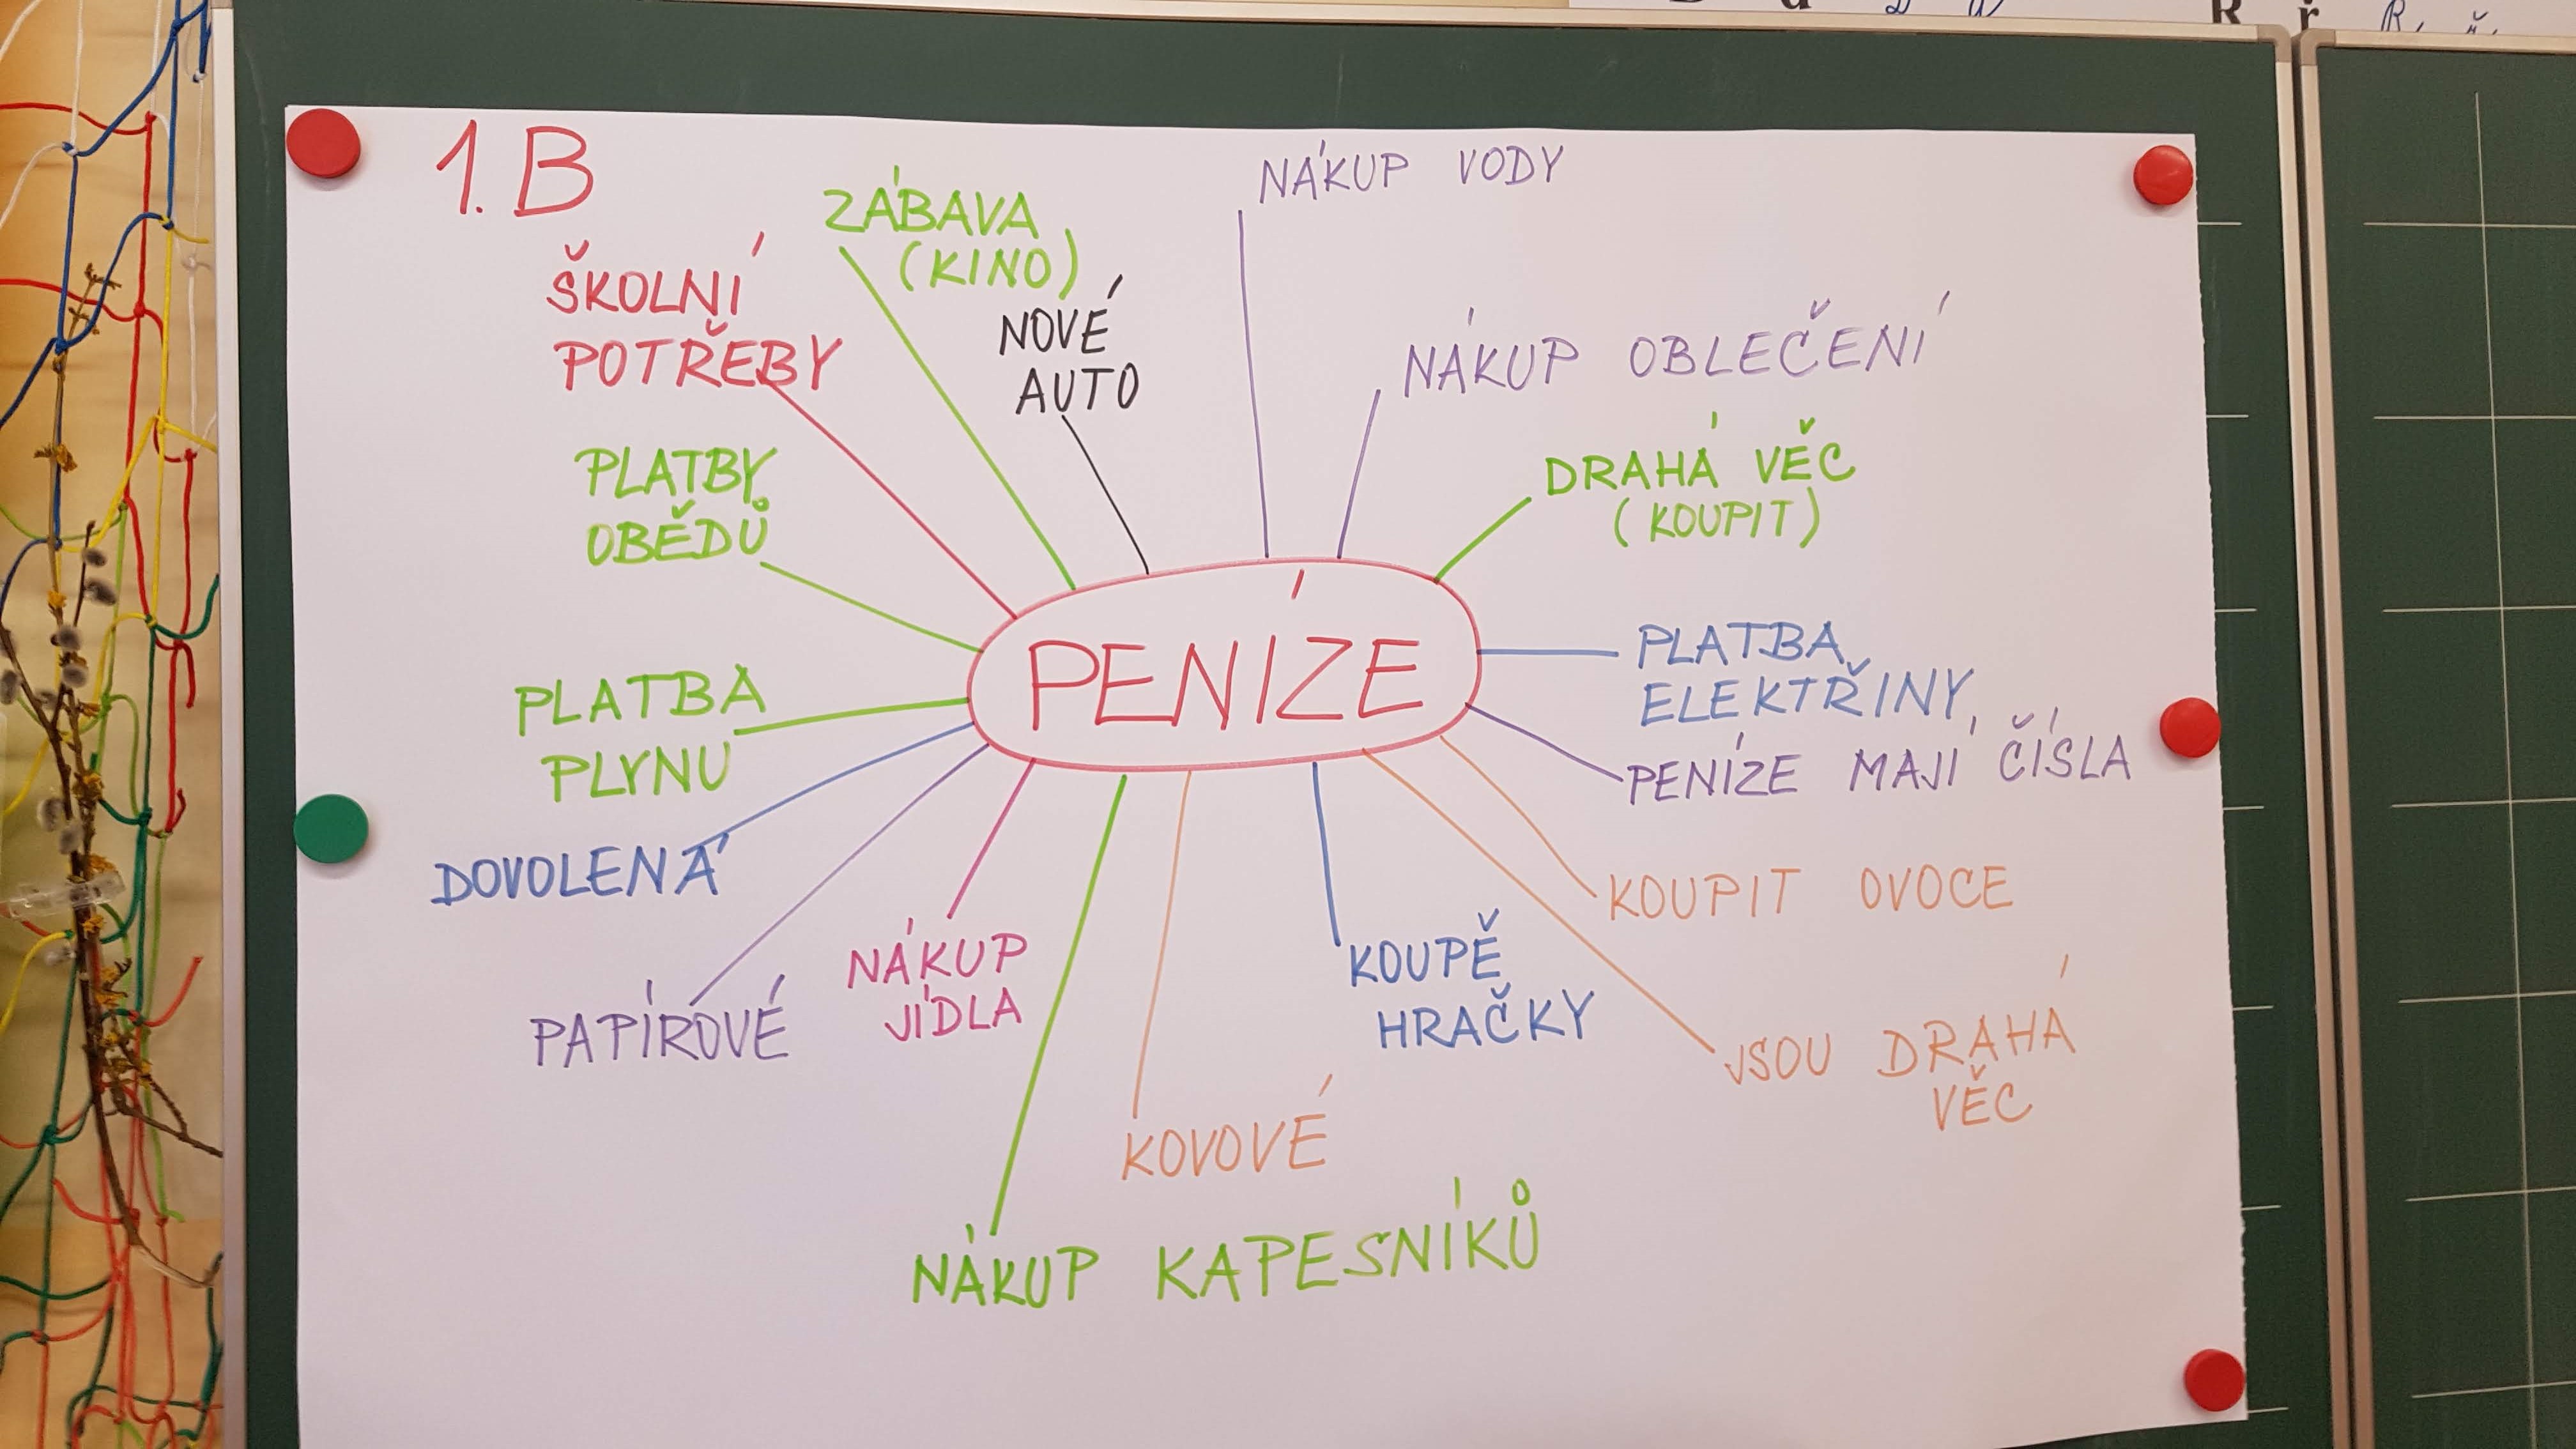 1.B
ŠKOLNÍ
POTŘEBY
ZÁBAVA
(KINO)
NOVÉ
AUTO
NÁKUP VODY
NÁKUP OBLEČENÍ
DRAHÁ VĚC
(KOUPIT)
PLATBY
OBĚDŮ
PENÍZE
PLATBA
ELEKTŘINY
PENÍZE MAJÍ ČÍSLA
PLATBA
PLYNU
DOVOLENÁ
KOUPIT OVOCE
PAPÍROVÉ
NÁKUP
JÍDLA
KOUPĚ
HRAČKY
JSOU DRAHÁ
VĚC
KOVOVÉ
NÁKUP KAPESNÍKŮ